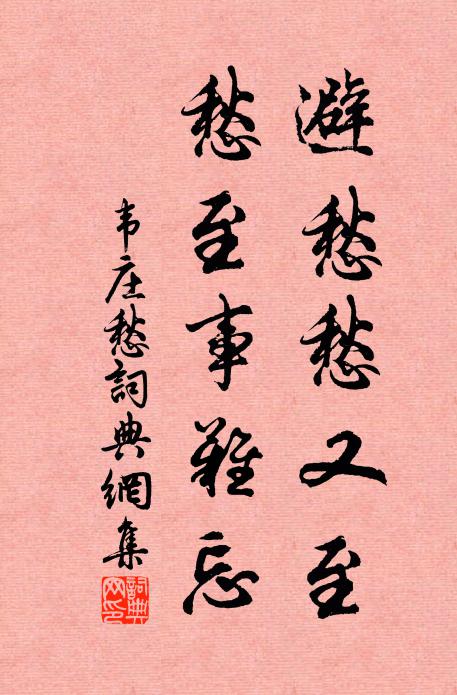 避愁愁又至
愁至事難忘
韦庄愁詞典網集
詞典网印